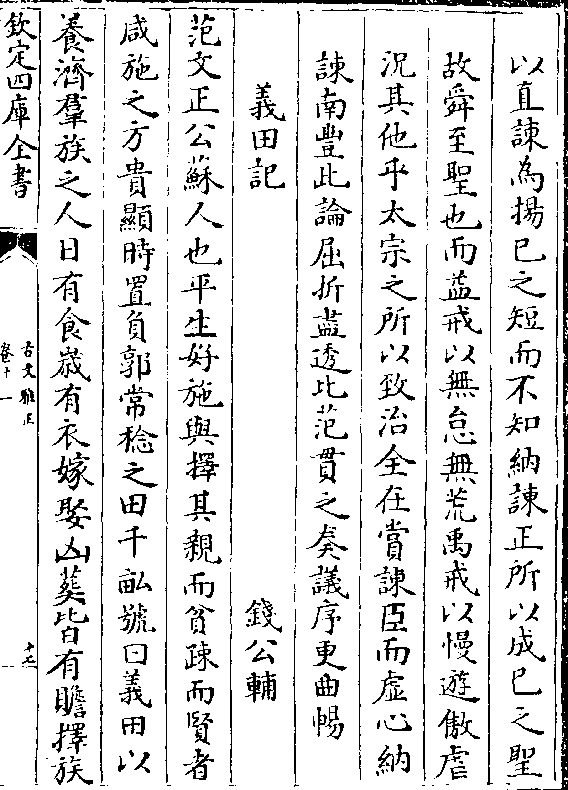 以直諫為揚已之短而不知納諫正所以成已之聖
故舜至聖也而益戒以無怠無荒禹戒以慢遊傲虐
况其他乎太宗之所以致治全在賞諫臣而虚心納
諫南豐此論屈折盡透比范貫之奏議序更曲暢
義田記 錢公輔
范文正公蘇人也平生好施與擇其親而貧疎而賢者
咸施之方貴顯時置負郭常稔之田千畝號曰義田以
養濟羣族之人日有食歲有衣嫁娶凶葬皆有贍擇族
欽定四庫全書
古文雅正
卷十一
十七